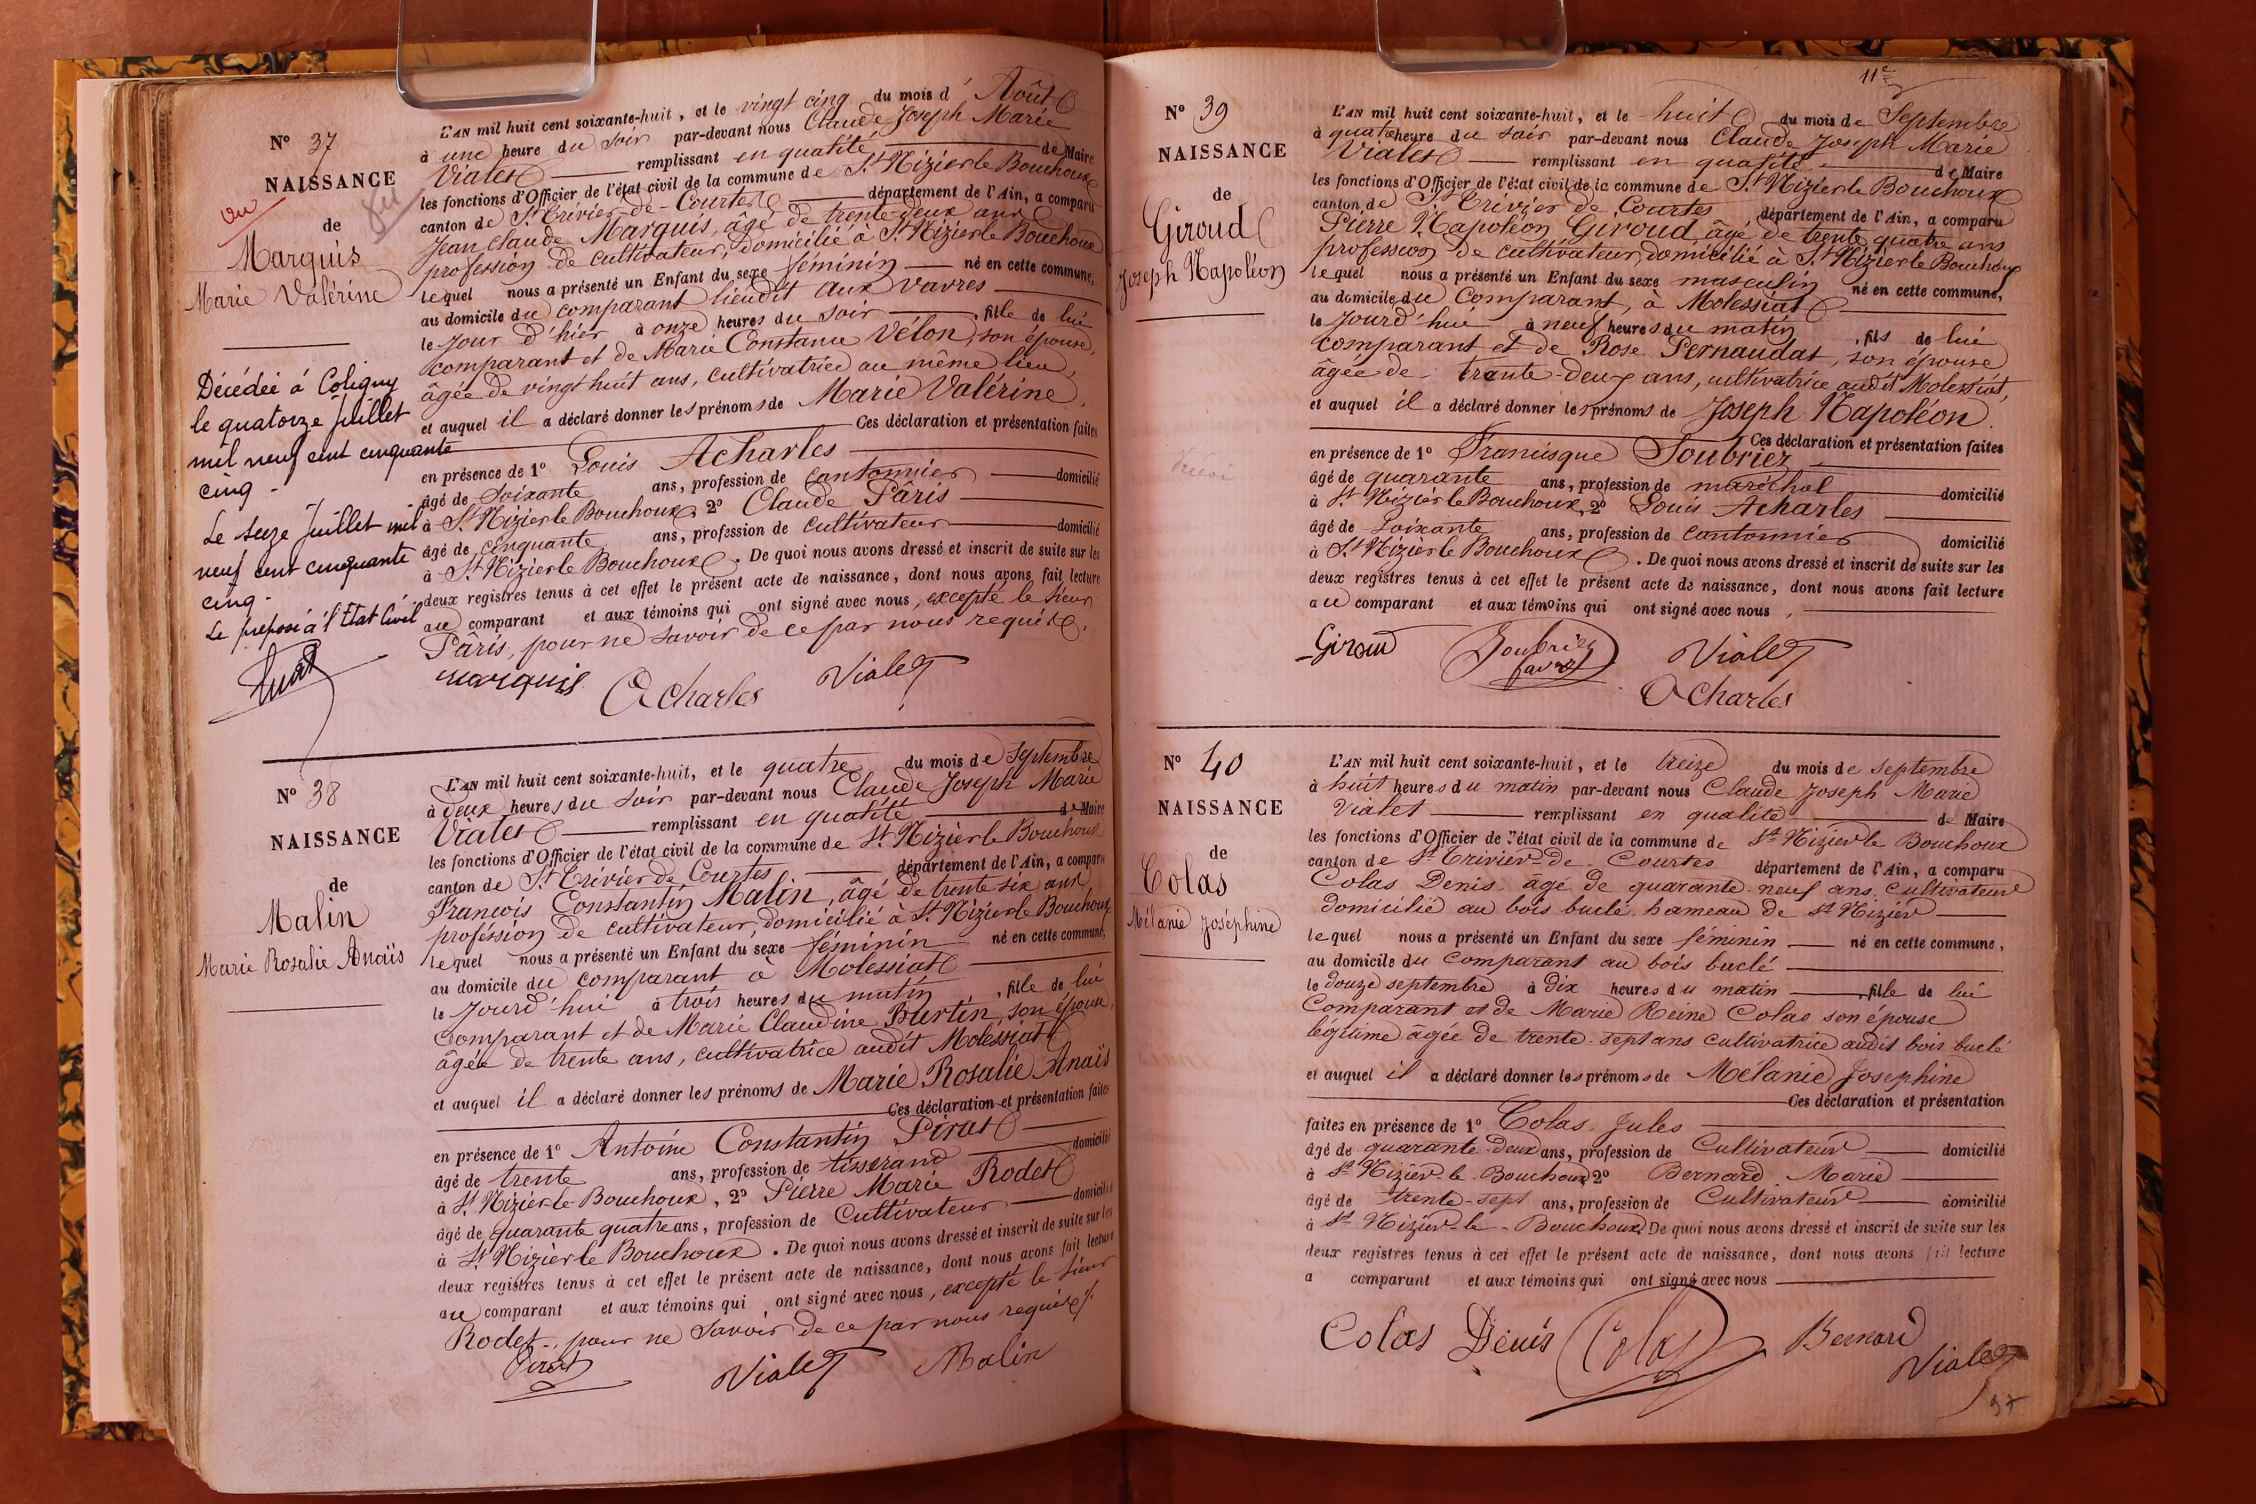 N° 37
NAISSANCE
vu
de
Marquis
Marie Valérine
Décédée à Coligny
le quatorze Juillet
mil neuf cent cinquante
cinq -
Le seize Juillet mil
neuf cent cinquante
cinq -
Le préposé à l'Etat Civil
L'AN mil huit cent soixante-huit, et le vingt cinq du mois d' Août
à une heure du soir par-devant nous Claude Joseph Marie
Vialet remplissant en qualité de Maire
les fonctions d'Officier de l'état civil de la commune de St Nizier le Bouchoux
canton de St Trivier-de-Courtes département de l'Ain, a comparu
Jean Claude Marquis, âgé de trente-deux ans
profession de cultivateur, domicilié à St Nizier le Bouchoux
lequel nous a présenté un Enfant du sexe féminin né en cette commune,
au domicile du comparant lieudit aux vavres
le jour d'hier à onze heures du soir, fille de lui
comparant et de Marie Constance Vélon, son épouse,
âgée de vingt huit ans, cultivatrice au même lieu,
et auquel il a déclaré donner les prénoms de Marie Valérine.
Ces déclaration et présentation faites
en présence de 1° Louis Acharles
âgé de soixante ans, profession de cantonnier domicilié
à St Nizier le Bouchoux, 2° Claude Pâris
âgé de cinquante ans, profession de cultivateur domicilié
à St Nizier le Bouchoux. De quoi nous avons dressé et inscrit de suite sur les
deux registres tenus à cet effet le présent acte de naissance, dont nous avons fait lecture
au comparant et aux témoins qui ont signé avec nous, excepté le sieur
Pâris, pour ne savoir de ce par nous requis.
marquis Acharles Vialet
N° 38
NAISSANCE
de
Malin
Marie Rosalie Anaïs
L'AN mil huit cent soixante-huit, et le quatre du mois de septembre
à deux heures du soir par-devant nous Claude Joseph Marie
Vialet remplissant en qualité de Maire
les fonctions d'Officier de l'état civil de la commune de St Nizier le Bouchoux
canton de St Trivier de Courtes département de l'Ain, a comparu
François Constantin Malin, âgé de trente six ans,
profession de cultivateur, domicilié à St Nizier le Bouchoux
lequel nous a présenté un Enfant du sexe féminin né en cette commune,
au domicile du comparant à Molessiat
le jourd'hui à trois heures du matin, fille de lui
comparant et de Marie Claudine Burtin, son épouse,
âgée de trente ans, cultivatrice audit Molessiat
et auquel il a déclaré donner les prénoms de Marie Rosalie Anaïs
Ces déclaration et présentation faites
en présence de 1° Antoine Constantin Pirat
âgé de trente ans, profession de tisserand domicilié
à St Nizier le Bouchoux, 2° Pierre Marie Rodet
âgé de quarante quatre ans, profession de Cultivateur domicilié
à St Nizier le Bouchoux. De quoi nous avons dressé et inscrit de suite sur les
deux registres tenus à cet effet le présent acte de naissance, dont nous avons fait lecture
au comparant et aux témoins qui ont signé avec nous, excepté le sieur
Rodet, pour ne savoir de ce par nous requis.
Pirat Vialet Malin
11e
N° 39
NAISSANCE
de
Giroud
Joseph Napoléon
L'AN mil huit cent soixante-huit, et le huit du mois de Septembre
à quatre heure du soir par-devant nous Claude Joseph Marie
Vialet remplissant en qualité de Maire
les fonctions d'Officier de l'état civil de la commune de St Nizier le Bouchoux
canton de St Trivier de Courtes, département de l'Ain, a comparu
Pierre Napoléon Giroud âgé de trente quatre ans
profession de cultivateur, domicilié à St Nizier le Bouchoux
lequel nous a présenté un Enfant du sexe masculin né en cette commune,
au domicile du comparant, à Molessiat
le jourd'hui à neuf heures du matin, fils de lui
comparant et de Rose Pernaudat, son épouse
âgée de trente-deux ans, cultivatrice audit Molessiat,
et auquel il a déclaré donner les prénoms de Joseph Napoléon.
Ces déclaration et présentation faites
en présence de 1° Francisque Soubriez
âgé de quarante ans, profession de maréchal domicilié
à St Nizier le Bouchoux, 2° Louis Acharles
âgé de soixante ans, profession de cantonnier domicilié
à St Nizier le Bouchoux. De quoi nous avons dressé et inscrit de suite sur les
deux registres tenus à cet effet le présent acte de naissance, dont nous avons fait lecture
au comparant et aux témoins qui ont signé avec nous,
Giroud Soubriez Vialet
Acharles
N° 40
NAISSANCE
de
Colas
Mélanie Joséphine
L'AN mil huit cent soixante-huit, et le treize du mois de septembre
à huit heures du matin par-devant nous Claude Joseph Marie
Vialet remplissant en qualité de Maire
les fonctions d'Officier de l'état civil de la commune de St Nizier le Bouchoux
canton de St Trivier-de-Courtes département de l'Ain, a comparu
Colas Denis âgé de quarante-neuf ans cultivateur
domicilié au bois buclé hameau de St Nizier
lequel nous a présenté un Enfant du sexe féminin né en cette commune,
au domicile du comparant au bois buclé
le douze septembre à dix heures du matin, fille de lui
Comparant et de Marie Reine Colas son épouse
légitime âgée de trente-sept ans cultivatrice audit bois buclé
et auquel il a déclaré donner les prénoms de Mélanie Josephine
Ces déclaration et présentation
faites en présence de 1° Colas Jules
âgé de quarante-deux ans, profession de Cultivateur domicilié
à St Nizier-le-Bouchoux 2° Bernard Marie
âgé de trente-sept ans, profession de Cultivateur domicilié
à St Nizier-le-Bouchoux De quoi nous avons dressé et inscrit de suite sur les
deux registres tenus à cet effet le présent acte de naissance, dont nous avons fait lecture
a comparant et aux témoins qui ont signé avec nous
Colas Denis Colas Bernard
Vialet